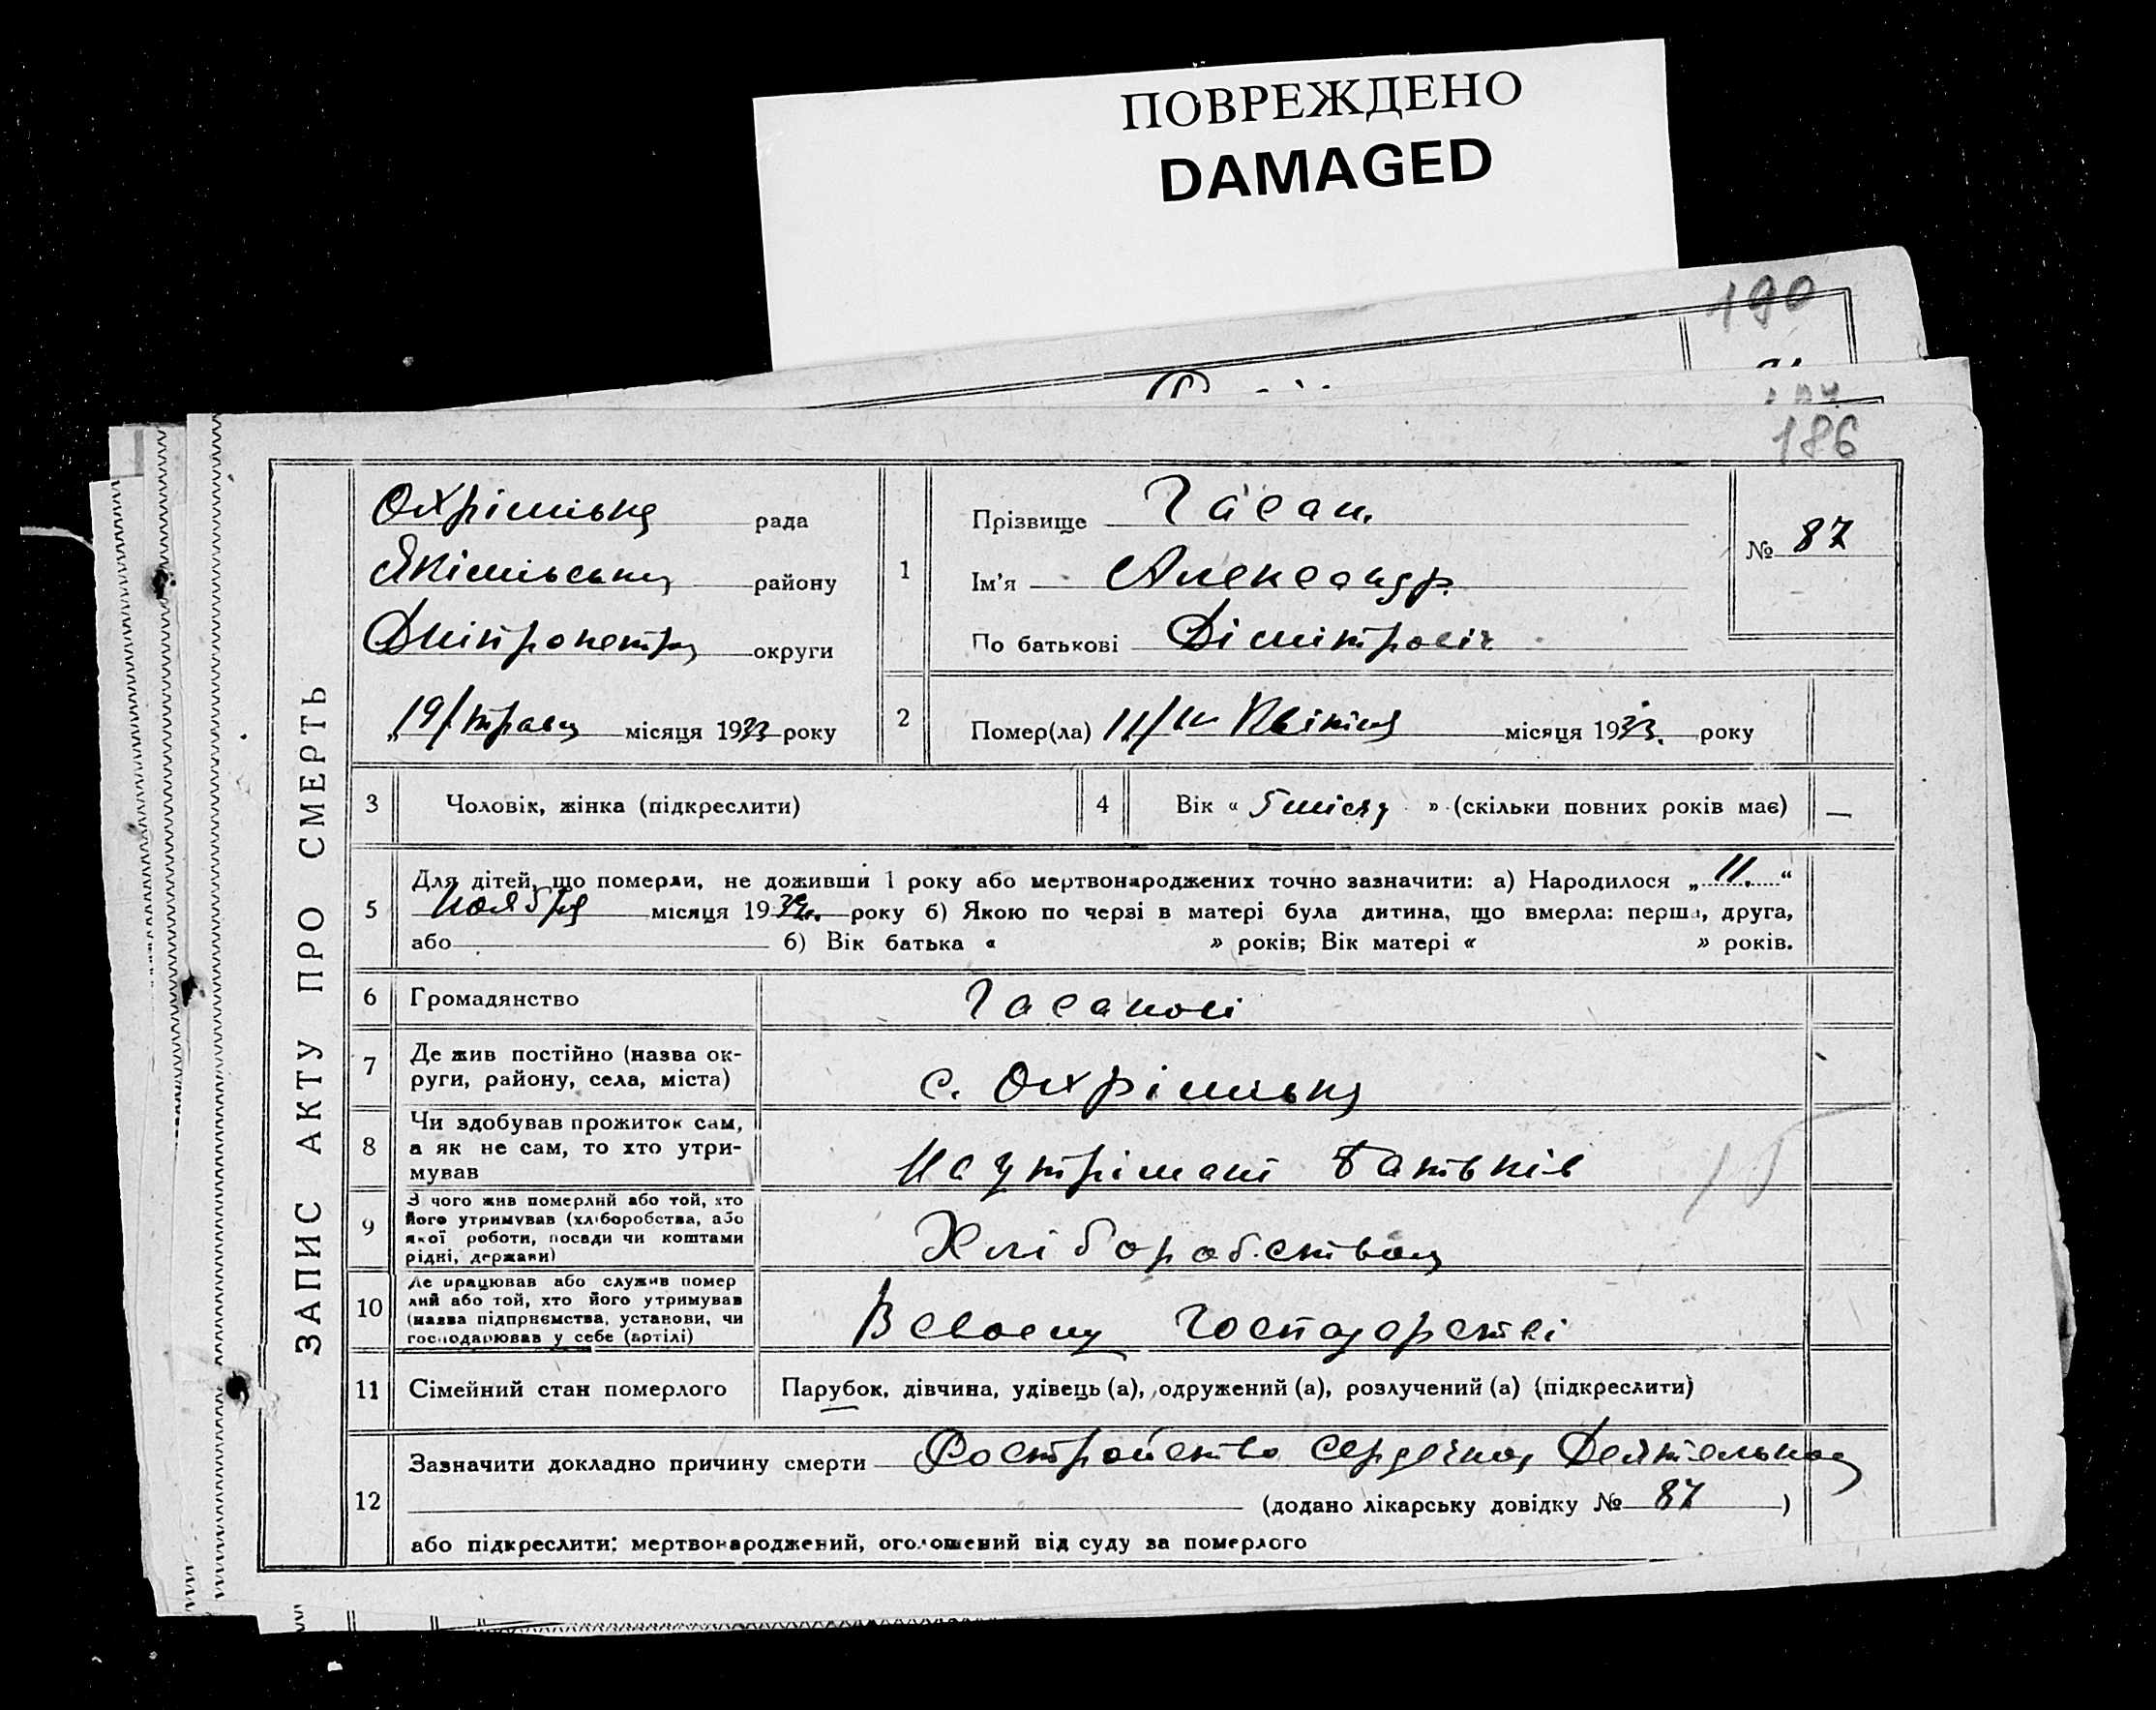 ПОВРЕЖДЕНО
DAMAGED
190
186
ЗАПИС АКТУ ПРО СМЕРТЬ
Охрімівка рада
Якімівськи району
Дніпропетр округи
„19/травц місяця 1933 року
1
Прізвище Гасан.
Ім'я Александр.
По батькові Дімітровіч
№ 87
2
Помер(ла) 11/ Квітня місяця 1933. року
3 Чоловік, жінка (підкреслити)
4 Вік « 5 місяц » (скільки повних років має) —
5
Для дітей, що померли, не доживши 1 року або мертвонароджених точно зазначити: а) Народилося „ 11. “
Ноября місяця 1932. року б) Якою по черзі в матері була дитина, що вмерла: перша, друга,
або б) Вік батька « » років; Вік матері « » років.
6 Громадянство
7 Де жив постійно (назва ок-
руги, району, села, міста) с. Охрімівка
8 Чи здобував прожиток сам,
а як не сам, то хто утри-
мував На утрімані батьків
9 З чого жив померлий або той, хто
його утримував (хліборобства, або
якої роботи, посади чи коштами
рідні, держави) Хліборобством
10 Де працював або служив помер
лий або той, хто його утримував
(назва підприємства, установи, чи
господарював у себе (артілі) В своему Господарстві
11 Сімейний стан померлого Парубок, дівчина, удівець (а), одружений (а), розлучений (а) (підкреслити)
12
Зазначити докладно причину смерти Ростройство сердечной Деятельнос
(додано лікарську довідку № 87 )
або підкреслити: мертвонароджений, оголошений від суду за померлого